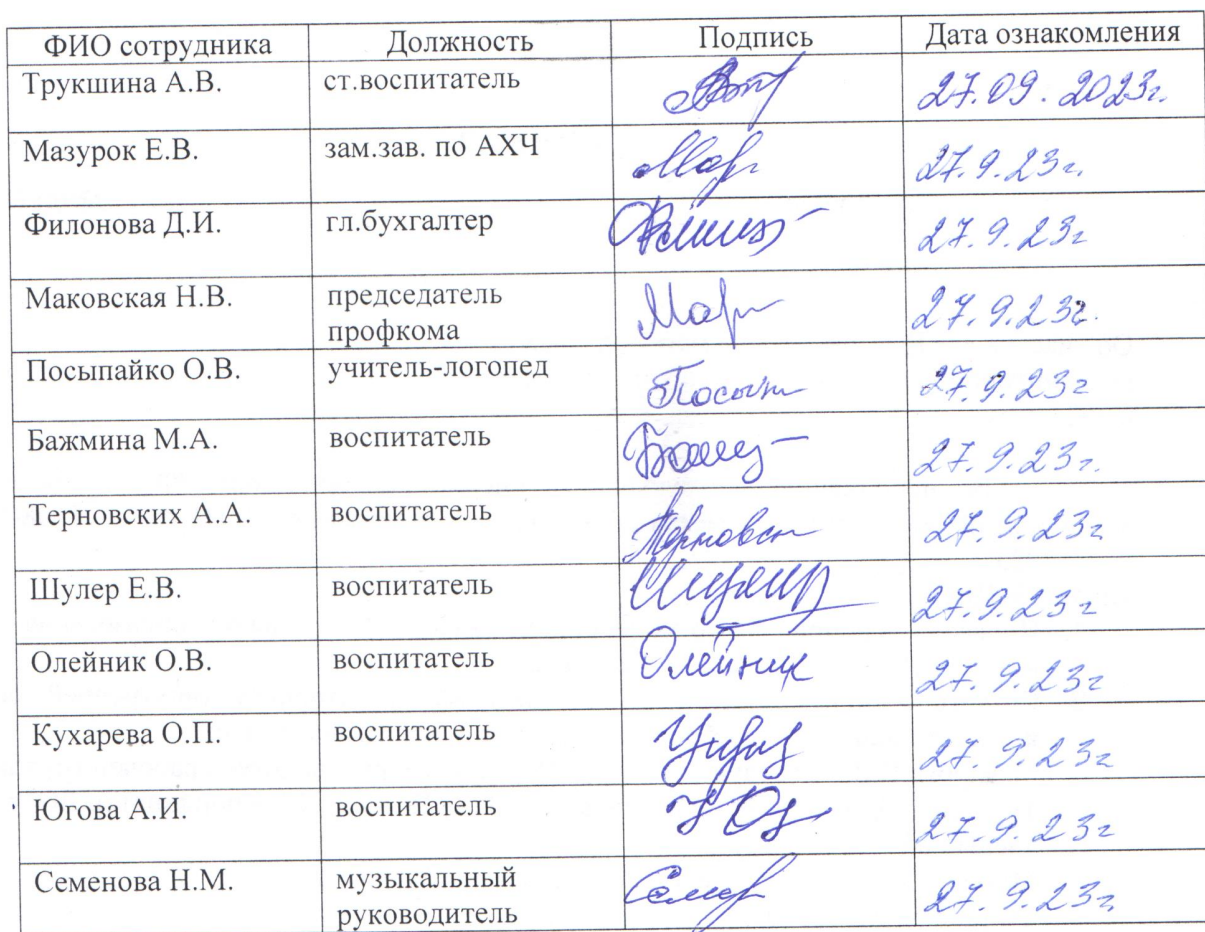 ФИО сотрудника Должность Подпись Дата ознакомления
Трукшина А.В. ст.воспитатель 27.09.2023г.
Мазурок Е.В. зам.зав. по АХЧ 27.9.23г.
Филонова Д.И. гл.бухгалтер 27.9.23г
Маковская Н.В. председатель 27.9.23г.
профкома
Посыпайко О.В. учитель-логопед 27.9.23г
Бажмина М.А. воспитатель 27.9.23г.
Терновских А.А. воспитатель 27.9.23г
Шулер Е.В. воспитатель 27.9.23г
Олейник О.В. воспитатель Олейник 27.9.23г
Кухарева О.П. воспитатель 27.9.23г
Югова А.И. воспитатель 27.9.23г
Семенова Н.М. музыкальный 27.9.23г
руководитель